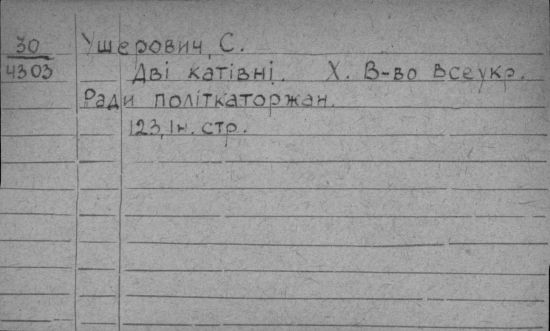 30 Ушерович, С.
4303 Дві катівні. Х. В-во Всеукр.
Ради політкаторжан.
123,1н. стр.